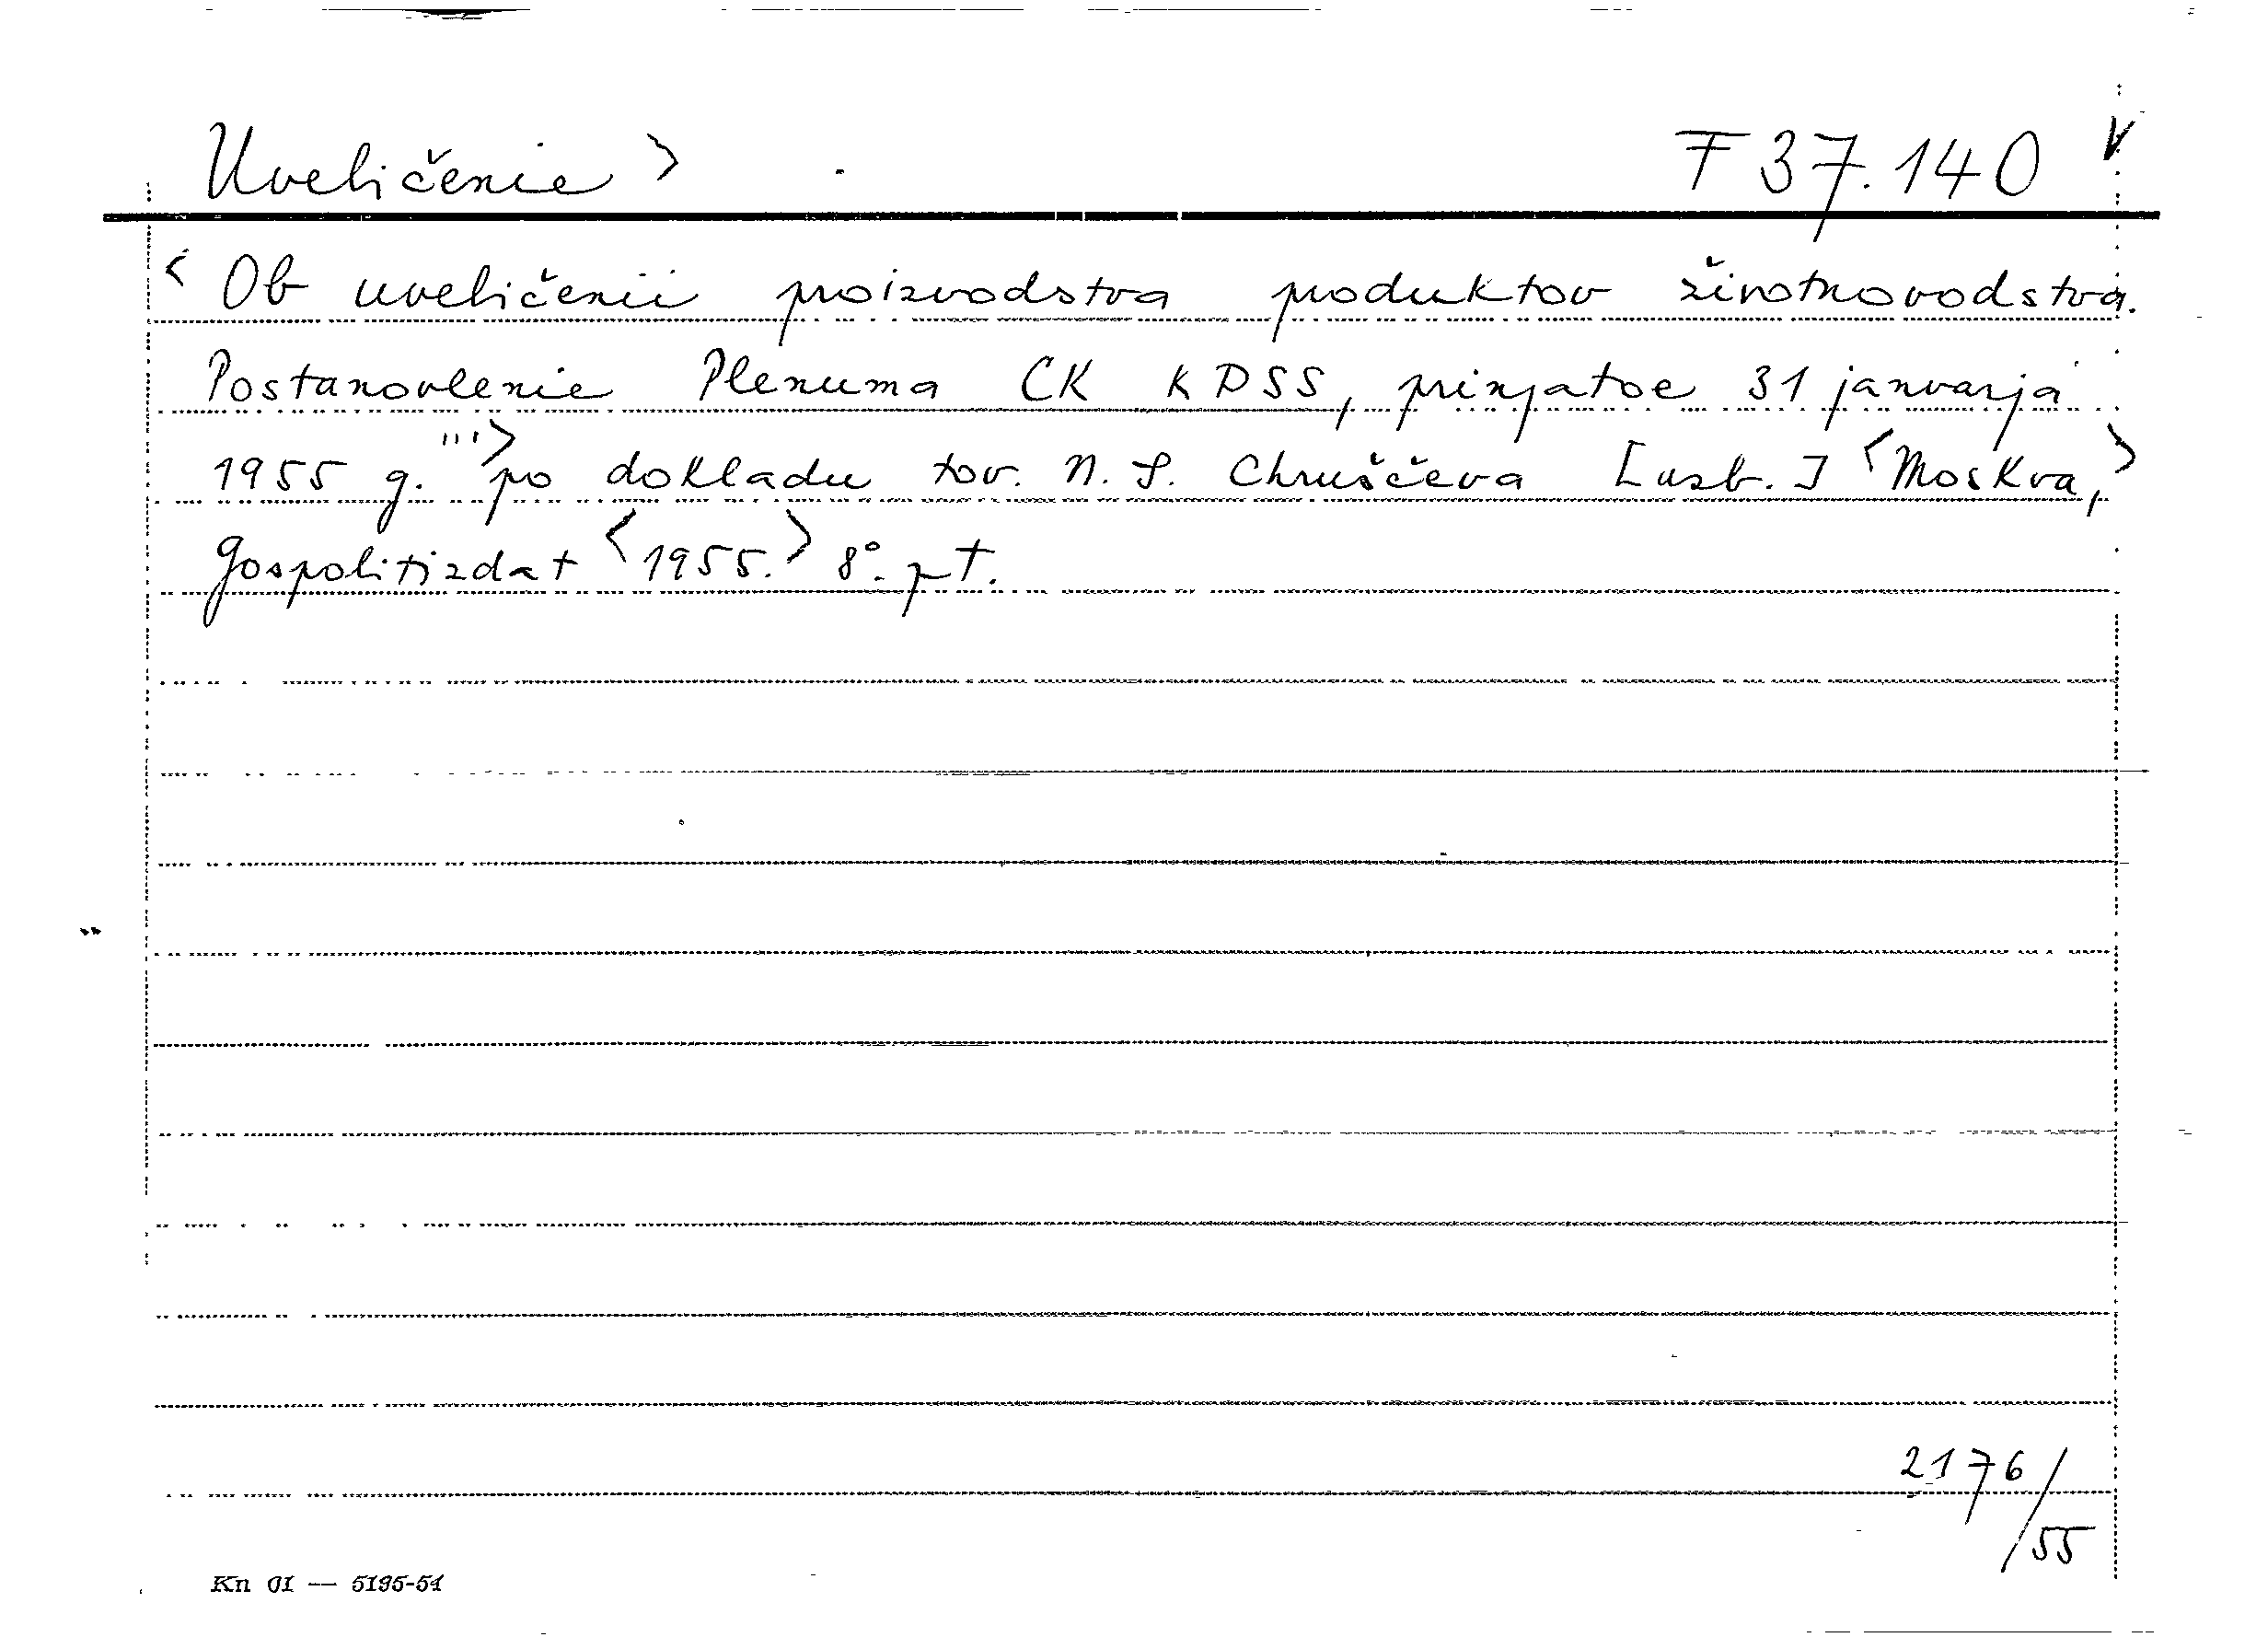 Uveličenie > F 37.140 V
< Ob uveličenii proizvodstva produktov životnovodstva.
Postanovlenie Plenuma CK KPSS, prinjatoe 31 janvarja
1955 g. '''> po dokladu tov. N. S. Chruščeva [usb.] <Moskva,>
Gospolitizdat <1955.> 8°. pt.
2176/
55
Kn 01 — 5195-54